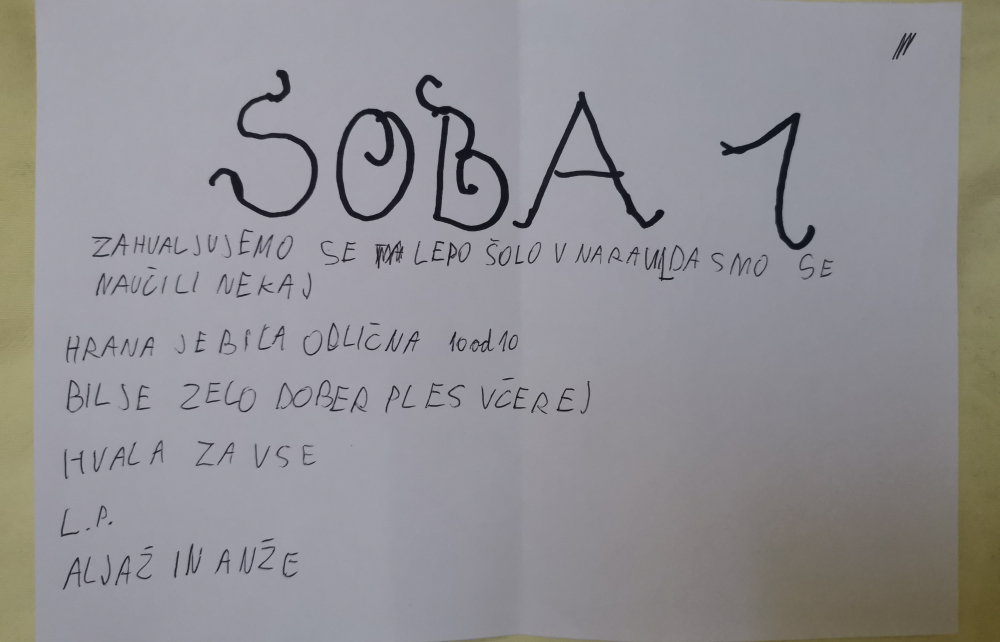 SOBA 1
ZAHVALJUJEMO SE ZA LEPO ŠOLO V NARAVI DA SMO SE
NAUČILI NEKAJ
HRANA JE BILA ODLIČNA 10 od 10
BIL JE ZELO DOBER PLES VČEREJ
HVALA ZA VSE
L.P.
ALJAŽ IN ANŽE